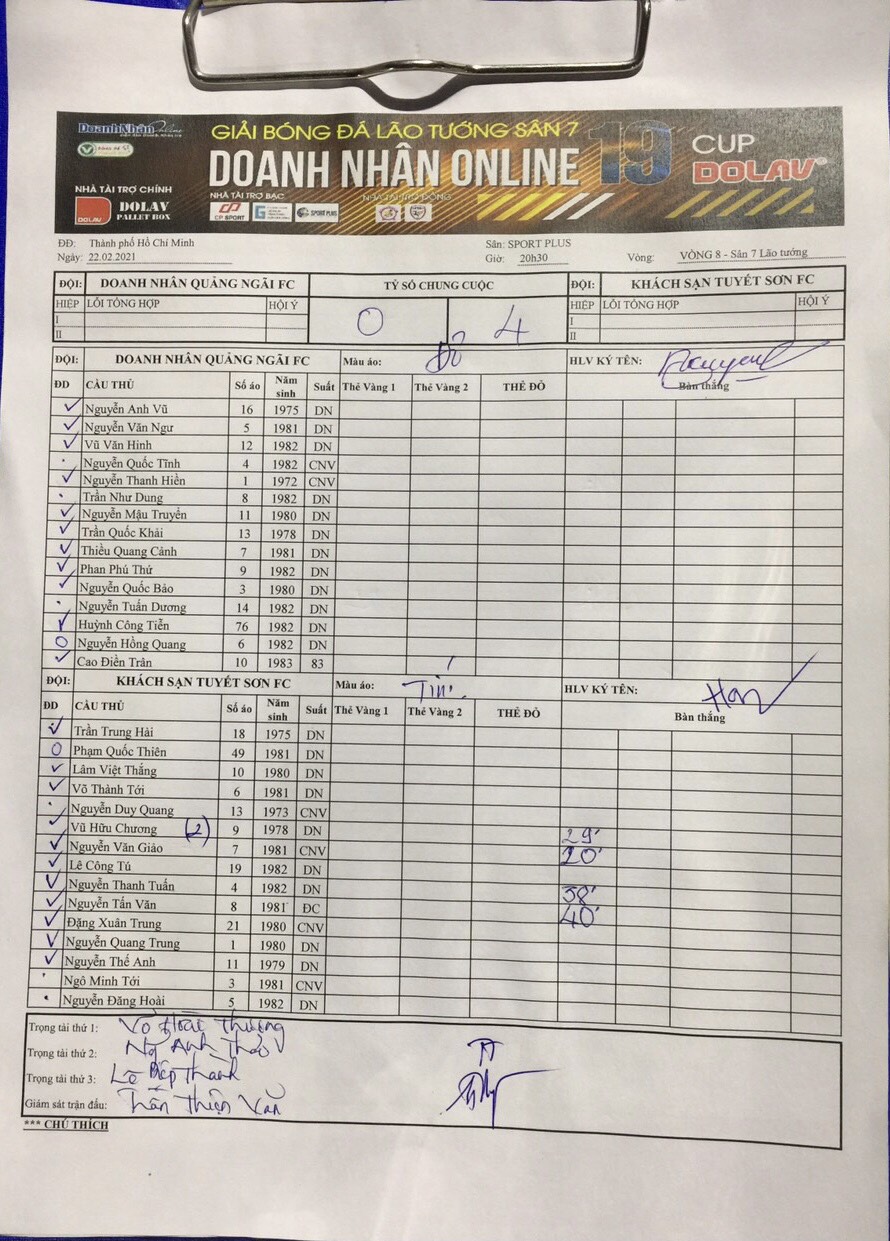 DoanhNhân Online
GIẢI BÓNG ĐÁ LÃO TƯỚNG SÂN 7
DOANH NHÂN ONLINE 19
CUP
DOLAV®
NHÀ TÀI TRỢ CHÍNH
DOLAV
DOLAV
PALLET BOX
NHÀ TÀI TRỢ BẠC
NHÀ TÀI TRỢ ĐỒNG
CP SPORT
SPORT PLUS
ĐĐ: Thành phố Hồ Chí Minh
Sân: SPORT PLUS
Ngày: 22.02.2021
Giờ: 20h30
Vòng: VÒNG 8 - Sân 7 Lão tướng
ĐỘI: DOANH NHÂN QUẢNG NGÃI FC TỶ SỐ CHUNG CUỘC ĐỘI: KHÁCH SẠN TUYẾT SƠN FC
HIỆP LỖI TỔNG HỢP HỘI Ý 0 4 HIỆP LỖI TỔNG HỢP HỘI Ý
I I
II II
ĐỘI: DOANH NHÂN QUẢNG NGÃI FC Màu áo: Đỏ HLV KÝ TÊN:
ĐD CẦU THỦ Số áo Năm sinh Suất Thẻ Vàng 1 Thẻ Vàng 2 THẺ ĐỎ Bàn thắng
Nguyễn Anh Vũ 16 1975 DN
Nguyễn Văn Ngư 5 1981 DN
Vũ Văn Hinh 12 1982 DN
Nguyễn Quốc Tĩnh 4 1982 CNV
Nguyễn Thanh Hiền 1 1972 CNV
Trần Như Dung 8 1982 DN
Nguyễn Mậu Truyền 11 1980 DN
Trần Quốc Khải 13 1978 DN
Thiều Quang Cảnh 7 1981 DN
Phan Phú Thứ 9 1982 DN
Nguyễn Quốc Bảo 3 1980 DN
Nguyễn Tuấn Dương 14 1982 DN
Huỳnh Công Tiễn 76 1982 DN
Nguyễn Hồng Quang 6 1982 DN
Cao Điền Trân 10 1983 83
ĐỘI: KHÁCH SẠN TUYẾT SƠN FC Màu áo: Tím HLV KÝ TÊN:
ĐD CẦU THỦ Số áo Năm sinh Suất Thẻ Vàng 1 Thẻ Vàng 2 THẺ ĐỎ Bàn thắng
Trần Trung Hải 18 1975 DN
Phạm Quốc Thiên 49 1981 DN
Lâm Việt Thắng 10 1980 DN
Võ Thành Tới 6 1981 DN
Nguyễn Duy Quang 13 1973 CNV
Vũ Hữu Chương (2) 9 1978 DN 29'
Nguyễn Văn Giáo 7 1981 CNV 20'
Lê Công Tú 19 1982 DN
Nguyễn Thanh Tuấn 4 1982 DN 38'
Nguyễn Tấn Văn 8 1981 ĐC 40'
Đặng Xuân Trung 21 1980 CNV
Nguyễn Quang Trung 1 1980 DN
Nguyễn Thế Anh 11 1979 DN
Ngô Minh Tới 3 1981 CNV
Nguyễn Đăng Hoài 5 1982 DN
Trọng tài thứ 1: Võ Hoài Thương
Trọng tài thứ 2: Ng Anh Thảo
Trọng tài thứ 3: Lê Điệp Thành
Giám sát trận đấu: Trần Thiện Văn
*** CHÚ THÍCH